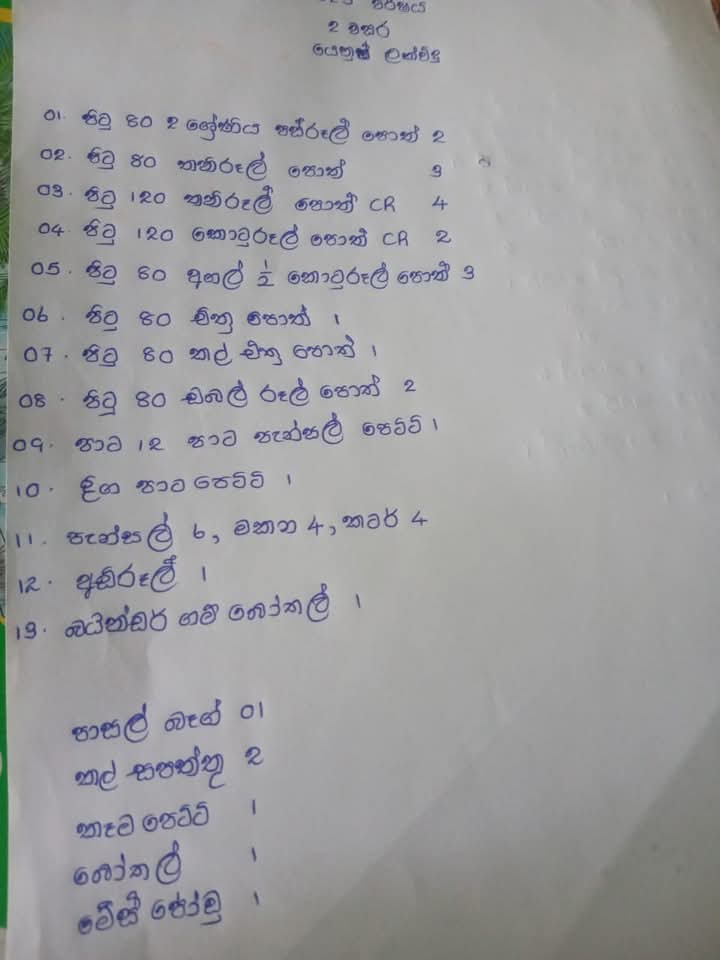 වර්ෂය
2 වසර
01. පිටු 80 2 ශ්‍රේණිය පස්රූල් පොත් 2
02. පිටු 80 තනිරූල් පොත් 3
03. පිටු 120 තනිරූල් පොත් CR 4
04. පිටු 120 කොටුරූල් පොත් CR 2
05. පිටු 80 අඟල් 1/2 කොටුරූල් පොත් 3
06. පිටු 80 චිත්‍ර පොත් 1
07. පිටු 80 කල් චිත්‍ර පොත් 1
08. පිටු 80 ඩබල් රූල් පොත් 2
09. පාට 12 පාට පැන්සල් පෙට්ටි 1
10. දිග පාට පෙට්ටි 1
11. පැන්සල් 6, මකන 4, කටර් 4
12. අඩිරූල් 1
13. බයින්ඩර් ගම් බෝතල් 1
පාසල් බෑග් 01
කල් සපත්තු 2
කෑම පෙට්ටි 1
බෝතල් 1
මේස් ජෝඩු 1